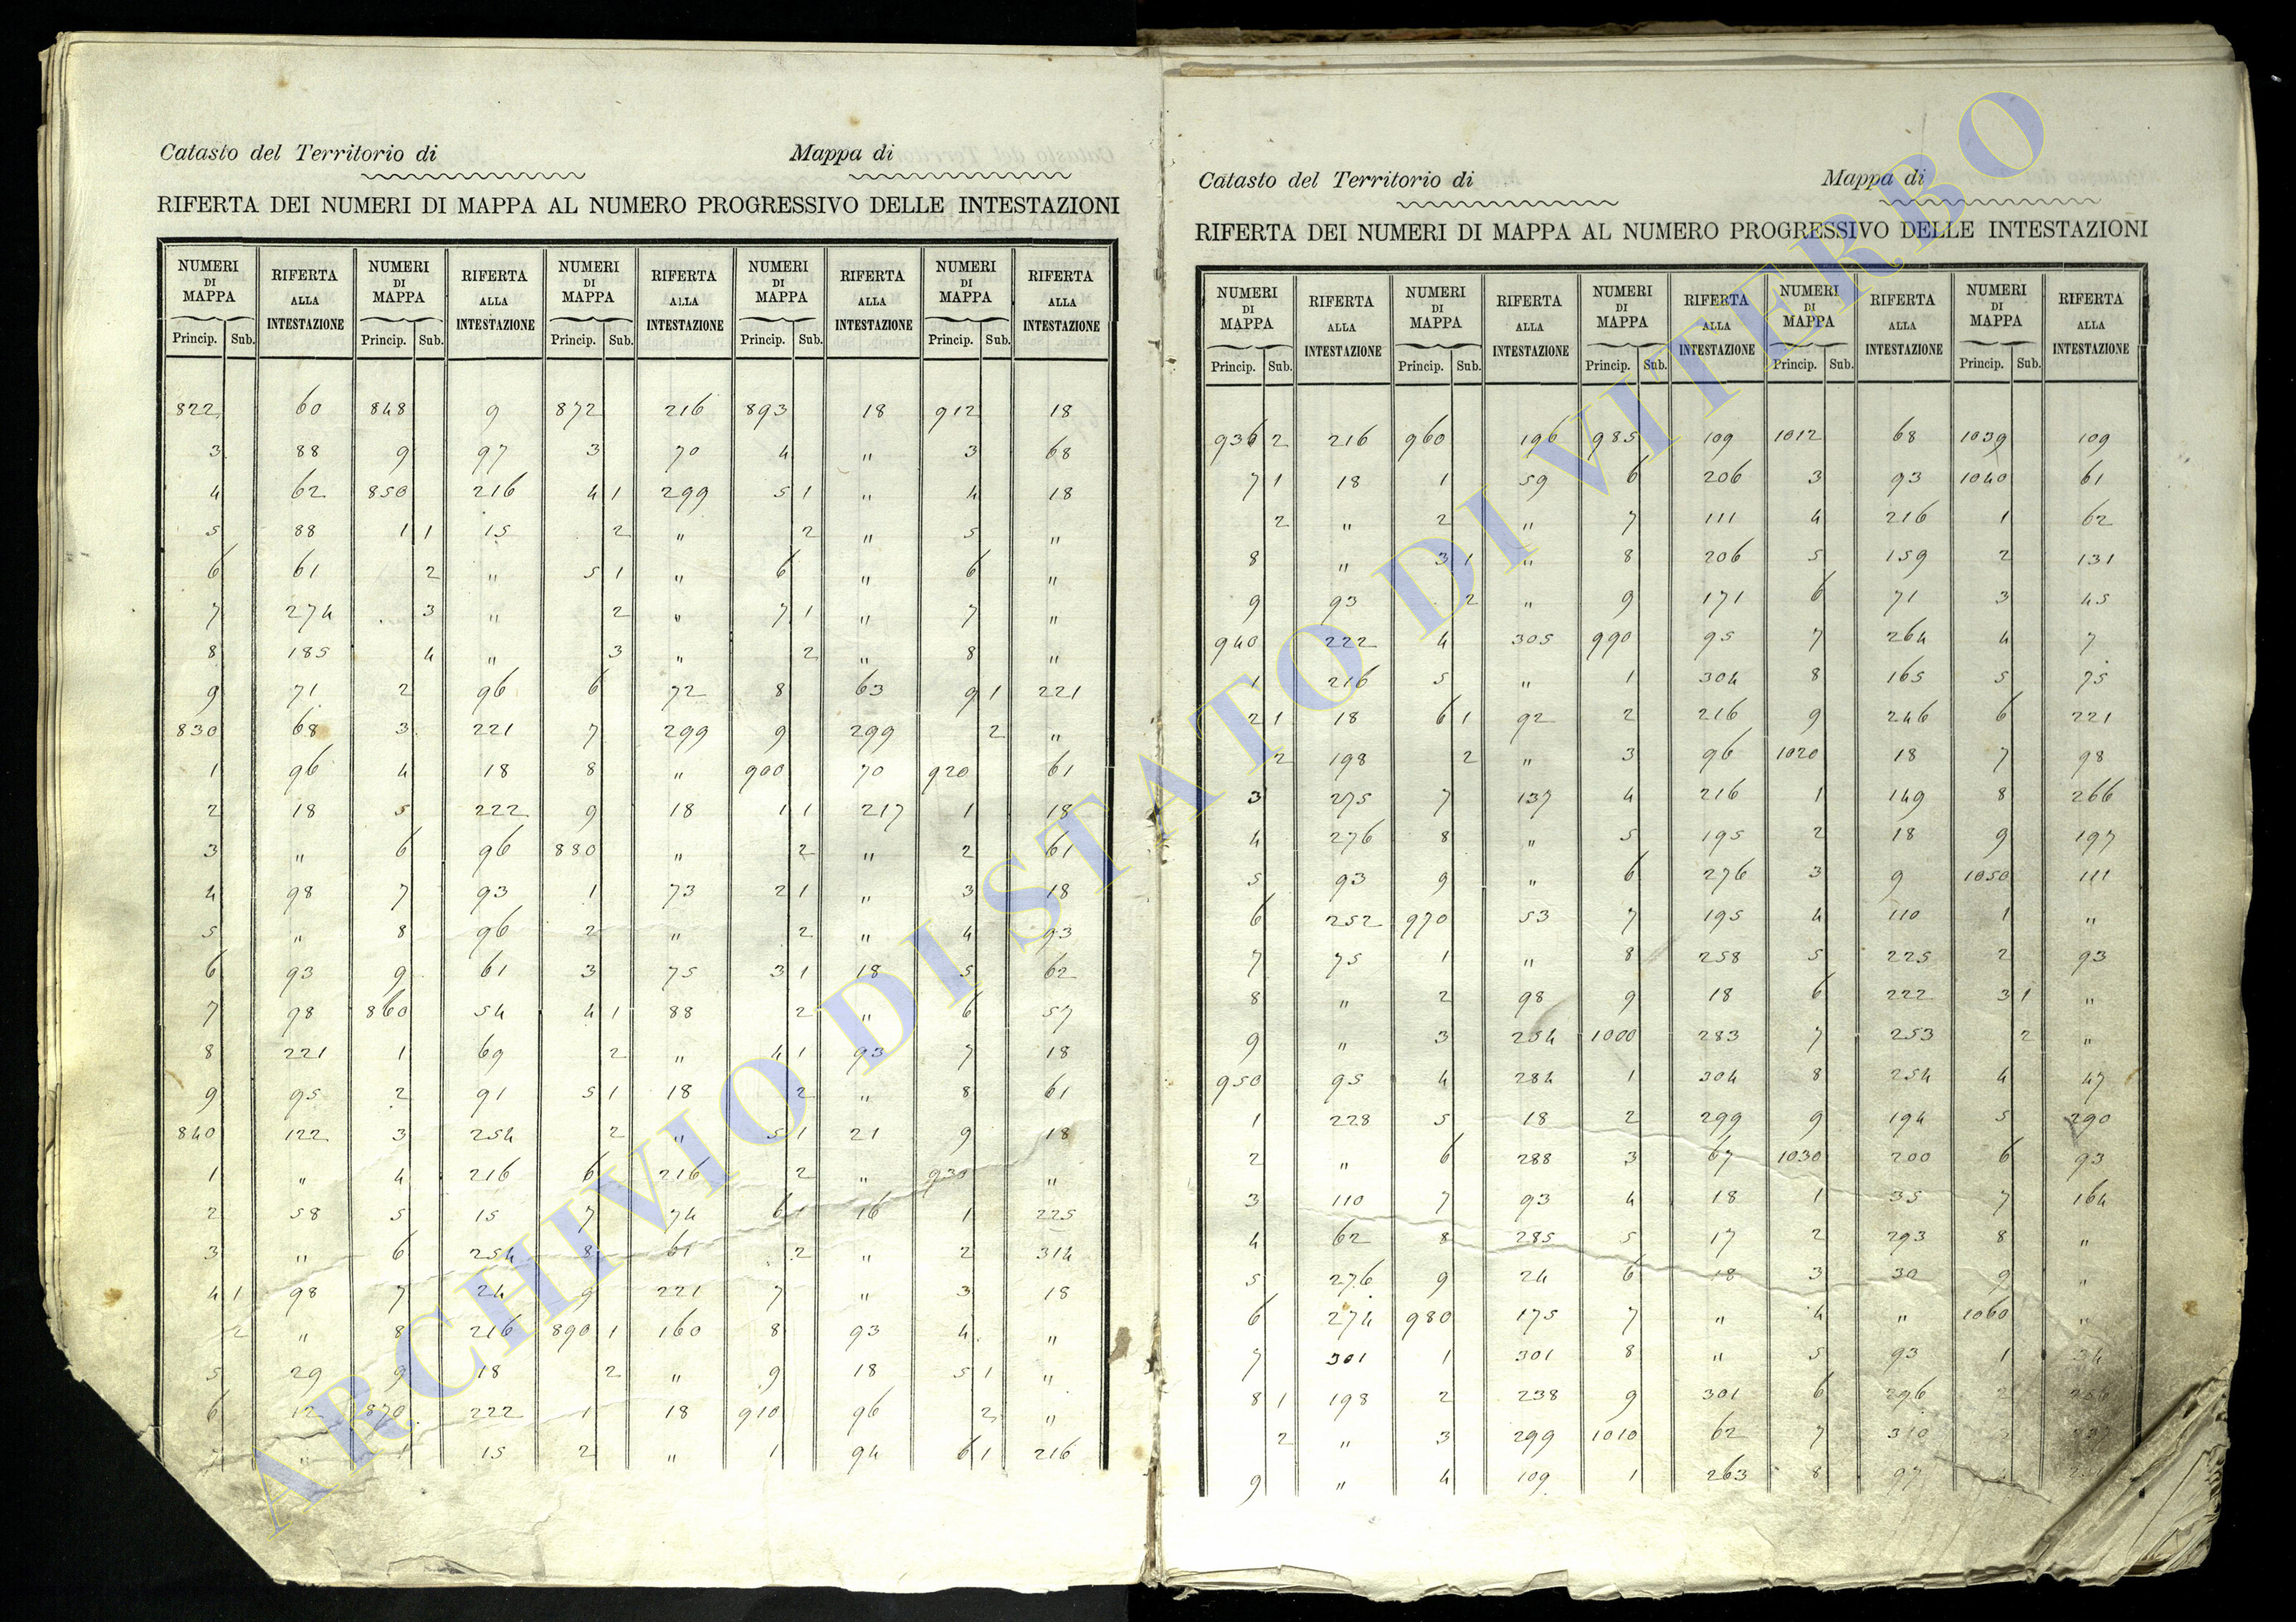 Catasto del Territorio di Mappa di
RIFERTA DEI NUMERI DI MAPPA AL NUMERO PROGRESSIVO DELLE INTESTAZIONI
NUMERI DI MAPPA RIFERTA ALLA INTESTAZIONE NUMERI DI MAPPA RIFERTA ALLA INTESTAZIONE NUMERI DI MAPPA RIFERTA ALLA INTESTAZIONE NUMERI DI MAPPA RIFERTA ALLA INTESTAZIONE NUMERI DI MAPPA RIFERTA ALLA INTESTAZIONE
Princip. Sub. Princip. Sub. Princip. Sub. Princip. Sub. Princip. Sub.
822 60 848 9 872 216 893 18 912 18
3 88 9 97 3 70 4 " 3 68
4 62 850 216 4 1 299 5 1 " 4 18
5 88 1 1 15 2 " 2 " 5 "
6 61 2 " 5 1 " 6 " 6 "
7 274 3 " 2 " 7 1 " 7 "
8 185 4 " 3 " 2 " 8 "
9 71 2 96 6 72 8 63 9 1 221
830 68 3 221 7 299 9 299 2 "
1 96 4 18 8 " 900 70 920 61
2 18 5 222 9 18 1 1 217 1 18
3 " 6 96 880 " 2 " 2 61
4 98 7 93 1 73 2 1 " 3 18
5 " 8 96 2 " 2 " 4 93
6 93 9 61 3 75 3 1 18 5 62
7 98 860 54 4 1 88 2 " 6 57
8 221 1 69 2 " 4 1 93 7 18
9 95 2 91 5 1 18 2 " 8 61
840 122 3 254 2 " 5 1 21 9 18
1 " 4 216 6 216 2 " 930 "
2 58 5 15 7 74 6 1 16 1 225
3 " 6 254 8 61 2 " 2 314
4 1 98 7 24 9 221 7 " 3 18
2 " 8 216 890 1 160 8 93 4 "
5 29 9 18 2 " 9 18 5 1 "
6 12 870 222 1 18 910 96 2 "
" 1 15 2 " 1 94 6 1 216
Catasto del Territorio di Mappa di
RIFERTA DEI NUMERI DI MAPPA AL NUMERO PROGRESSIVO DELLE INTESTAZIONI
NUMERI DI MAPPA RIFERTA ALLA INTESTAZIONE NUMERI DI MAPPA RIFERTA ALLA INTESTAZIONE NUMERI DI MAPPA RIFERTA ALLA INTESTAZIONE NUMERI DI MAPPA RIFERTA ALLA INTESTAZIONE NUMERI DI MAPPA RIFERTA ALLA INTESTAZIONE
Princip. Sub. Princip. Sub. Princip. Sub. Princip. Sub. Princip. Sub.
936 2 216 960 196 985 109 1012 68 1039 109
7 1 18 1 59 6 206 3 93 1040 61
2 " 2 " 7 111 4 216 1 62
8 " 3 1 " 8 206 5 159 2 131
9 93 2 " 9 171 6 71 3 45
940 222 4 305 990 95 7 264 4 7
1 216 5 " 1 304 8 165 5 75
2 1 18 6 1 92 2 216 9 246 6 221
2 198 2 " 3 96 1020 18 7 98
3 275 7 137 4 216 1 149 8 266
4 276 8 " 5 195 2 18 9 197
5 93 9 " 6 276 3 9 1050 111
6 252 970 53 7 195 4 110 1 "
7 75 1 " 8 258 5 225 2 93
8 " 2 98 9 18 6 222 3 1 "
9 " 3 254 1000 283 7 253 2 "
950 95 4 284 1 304 8 254 4 47
1 228 5 18 2 299 9 194 5 290
2 " 6 288 3 67 1030 200 6 93
3 110 7 93 4 18 1 35 7 164
4 62 8 285 5 17 2 293 8 "
5 276 9 24 6 18 3 30 9 "
6 274 980 175 7 " 4 " 1060 "
7 301 1 301 8 " 5 93 1 34
8 1 198 2 238 9 301 6 296 2
2 " 3 299 1010 62 7 310
9 " 4 109 1 263 8 97
ARCHIVIO DI STATO DI VITERBO